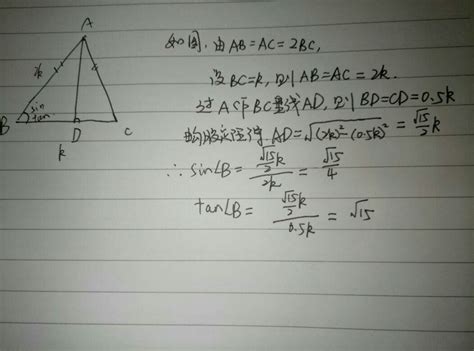 A
2k
sin
tan
B
D
C
k
如图，由AB=AC=2BC,
设BC=k,则AB=AC=2k.
过A作BC垂线AD,则BD=CD=0.5k
由勾股定理得AD=√((2k)²-(0.5k)²)=√15/2 k
∴sin∠B=(√15/2 k)/(2k)=√15/4
tan∠B=(√15/2 k)/(0.5k)=√15